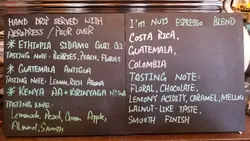 HAND DRIP SERVED WITH
AEROPRESS / POUR OVER
* ETHIOPIA SIDAMO GUJI G1
TASTING NOTE: BERRIES, PEACH, FLORALS
* GUATEMALA ANTIGUA
TASTING NOTE: LEMON, RICH AROMA
* KENYA AA+ KIRINYAGA
TASTING NOTE:
Lemonade, Apple,
Almond, Smooth
I'M NUTS ESPRESSO BLEND
COSTA RICA,
GUATEMALA,
COLOMBIA
TASTING NOTE:
FLORAL, CHOCOLATE,
LEMONY ACIDITY, CARAMEL, MELLOW
WALNUT-LIKE TASTE,
SMOOTH FINISH